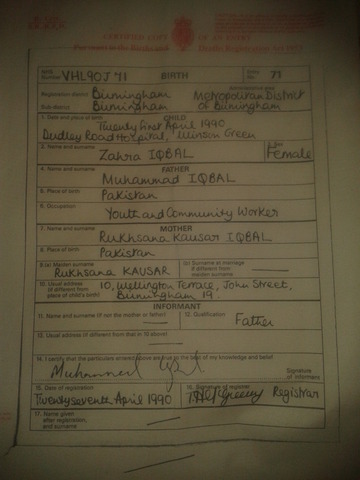 CERTIFIED COPY OF AN ENTRY
NHS Number VHL90J '11 BIRTH Entry No. 71
Registration district Birmingham Administrative area
Sub-district Birmingham Metropolitan District of Birmingham
CHILD
1. Date and place of birth Twenty first April 1990
Dudley Road Hospital, Winson Green
2. Name and surname Zahra IQBAL 3. Sex Female
FATHER
4. Name and surname Muhammad IQBAL
5. Place of birth Pakistan
6. Occupation Youth and Community Worker
MOTHER
7. Name and surname Rukhsana Kausar IQBAL
8. Place of birth Pakistan
9.(a) Maiden surname Rukhsana KAUSAR (b) Surname at marriage if different from maiden surname
10. Usual address (if different from place of child's birth) 10, Wellington Terrace, John Street, Birmingham 19.
INFORMANT
11. Name and surname (if not the mother or father) 12. Qualification Father
13. Usual address (if different from that in 10 above)
14. I certify that the particulars entered above are true to the best of my knowledge and belief
Muhammad Iqbal Signature of informant
15. Date of registration Twenty seventh April 1990 16. Signature of registrar Registrar
17. Name given after registration, and surname